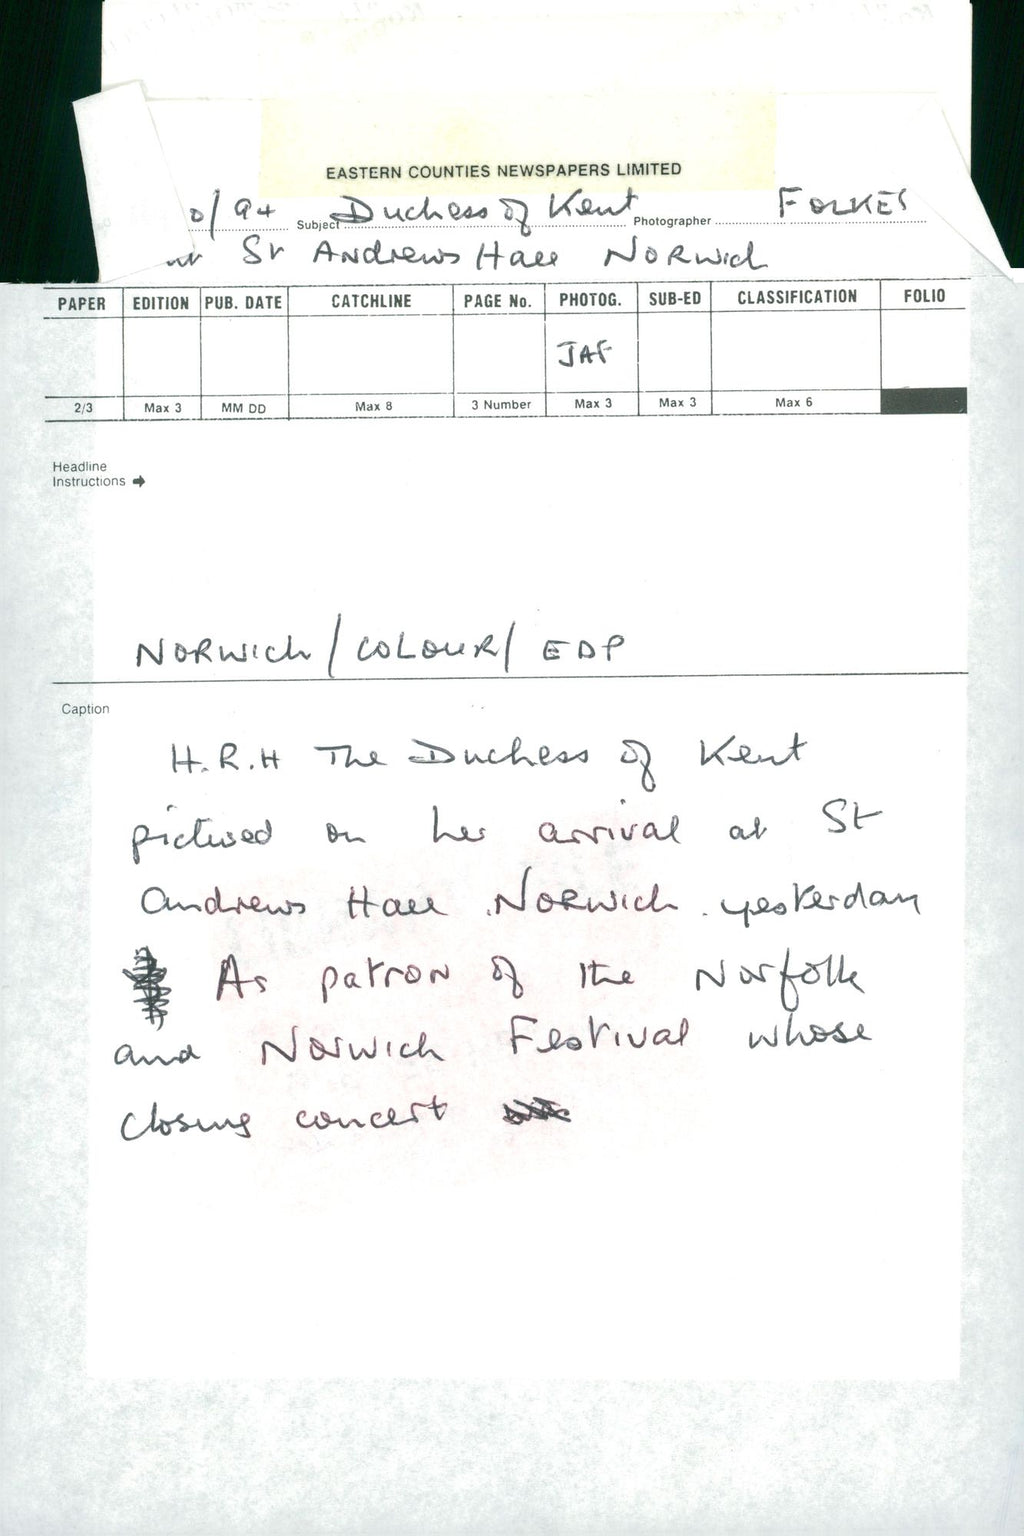 EASTERN COUNTIES NEWSPAPERS LIMITED
0/94 Subject Duchess of Kent Photographer FOLKES
at St Andrews Hall Norwich
PAPER EDITION PUB. DATE CATCHLINE PAGE No. PHOTOG. SUB-ED CLASSIFICATION FOLIO
JAF
2/3 Max 3 MM DD Max 8 3 Number Max 3 Max 3 Max 6
Headline
Instructions ➡
NORWICH/COLOUR/ EDP
Caption
H.R.H The Duchess of Kent
pictured on her arrival at St
Andrews Hall Norwich yesterday
As patron of the Norfolk
and Norwich Festival whose
closing concert